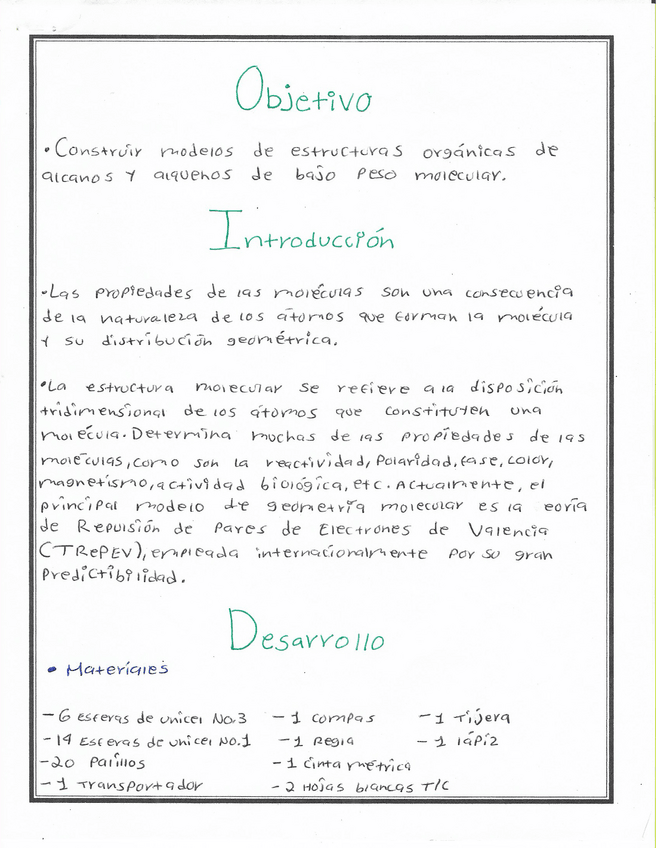 Objetivo
•Construir modelos de estructuras orgánicas de
alcanos y alquenos de bajo peso molecular.
Introducción
•Las propiedades de las moléculas son una consecuencia
de la naturaleza de los átomos que forman la molécula
y su distribución geométrica.
•La estructura molecular se refiere a la disposición
tridimensional de los átomos que constituyen una
molécula. Determina muchas de las propiedades de las
moléculas, como son la reactividad, Polaridad, fase, color,
magnetismo, actividad biológica, etc. Actualmente, el
principal modelo de geometría molecular es la eoría
de Repulsión de Pares de Electrones de Valencia
(TRePEV), empleada internacionalmente por su gran
Predictibilidad.
Desarrollo
• Materiales
- 6 esferas de unicel No.3 - 1 compas - 1 Tijera
- 14 Esferas de unicel No.1 - 1 Regla - 1 lápiz
- 20 Palillos - 1 cinta métrica
- 1 Transportador - 2 Hojas blancas T/C